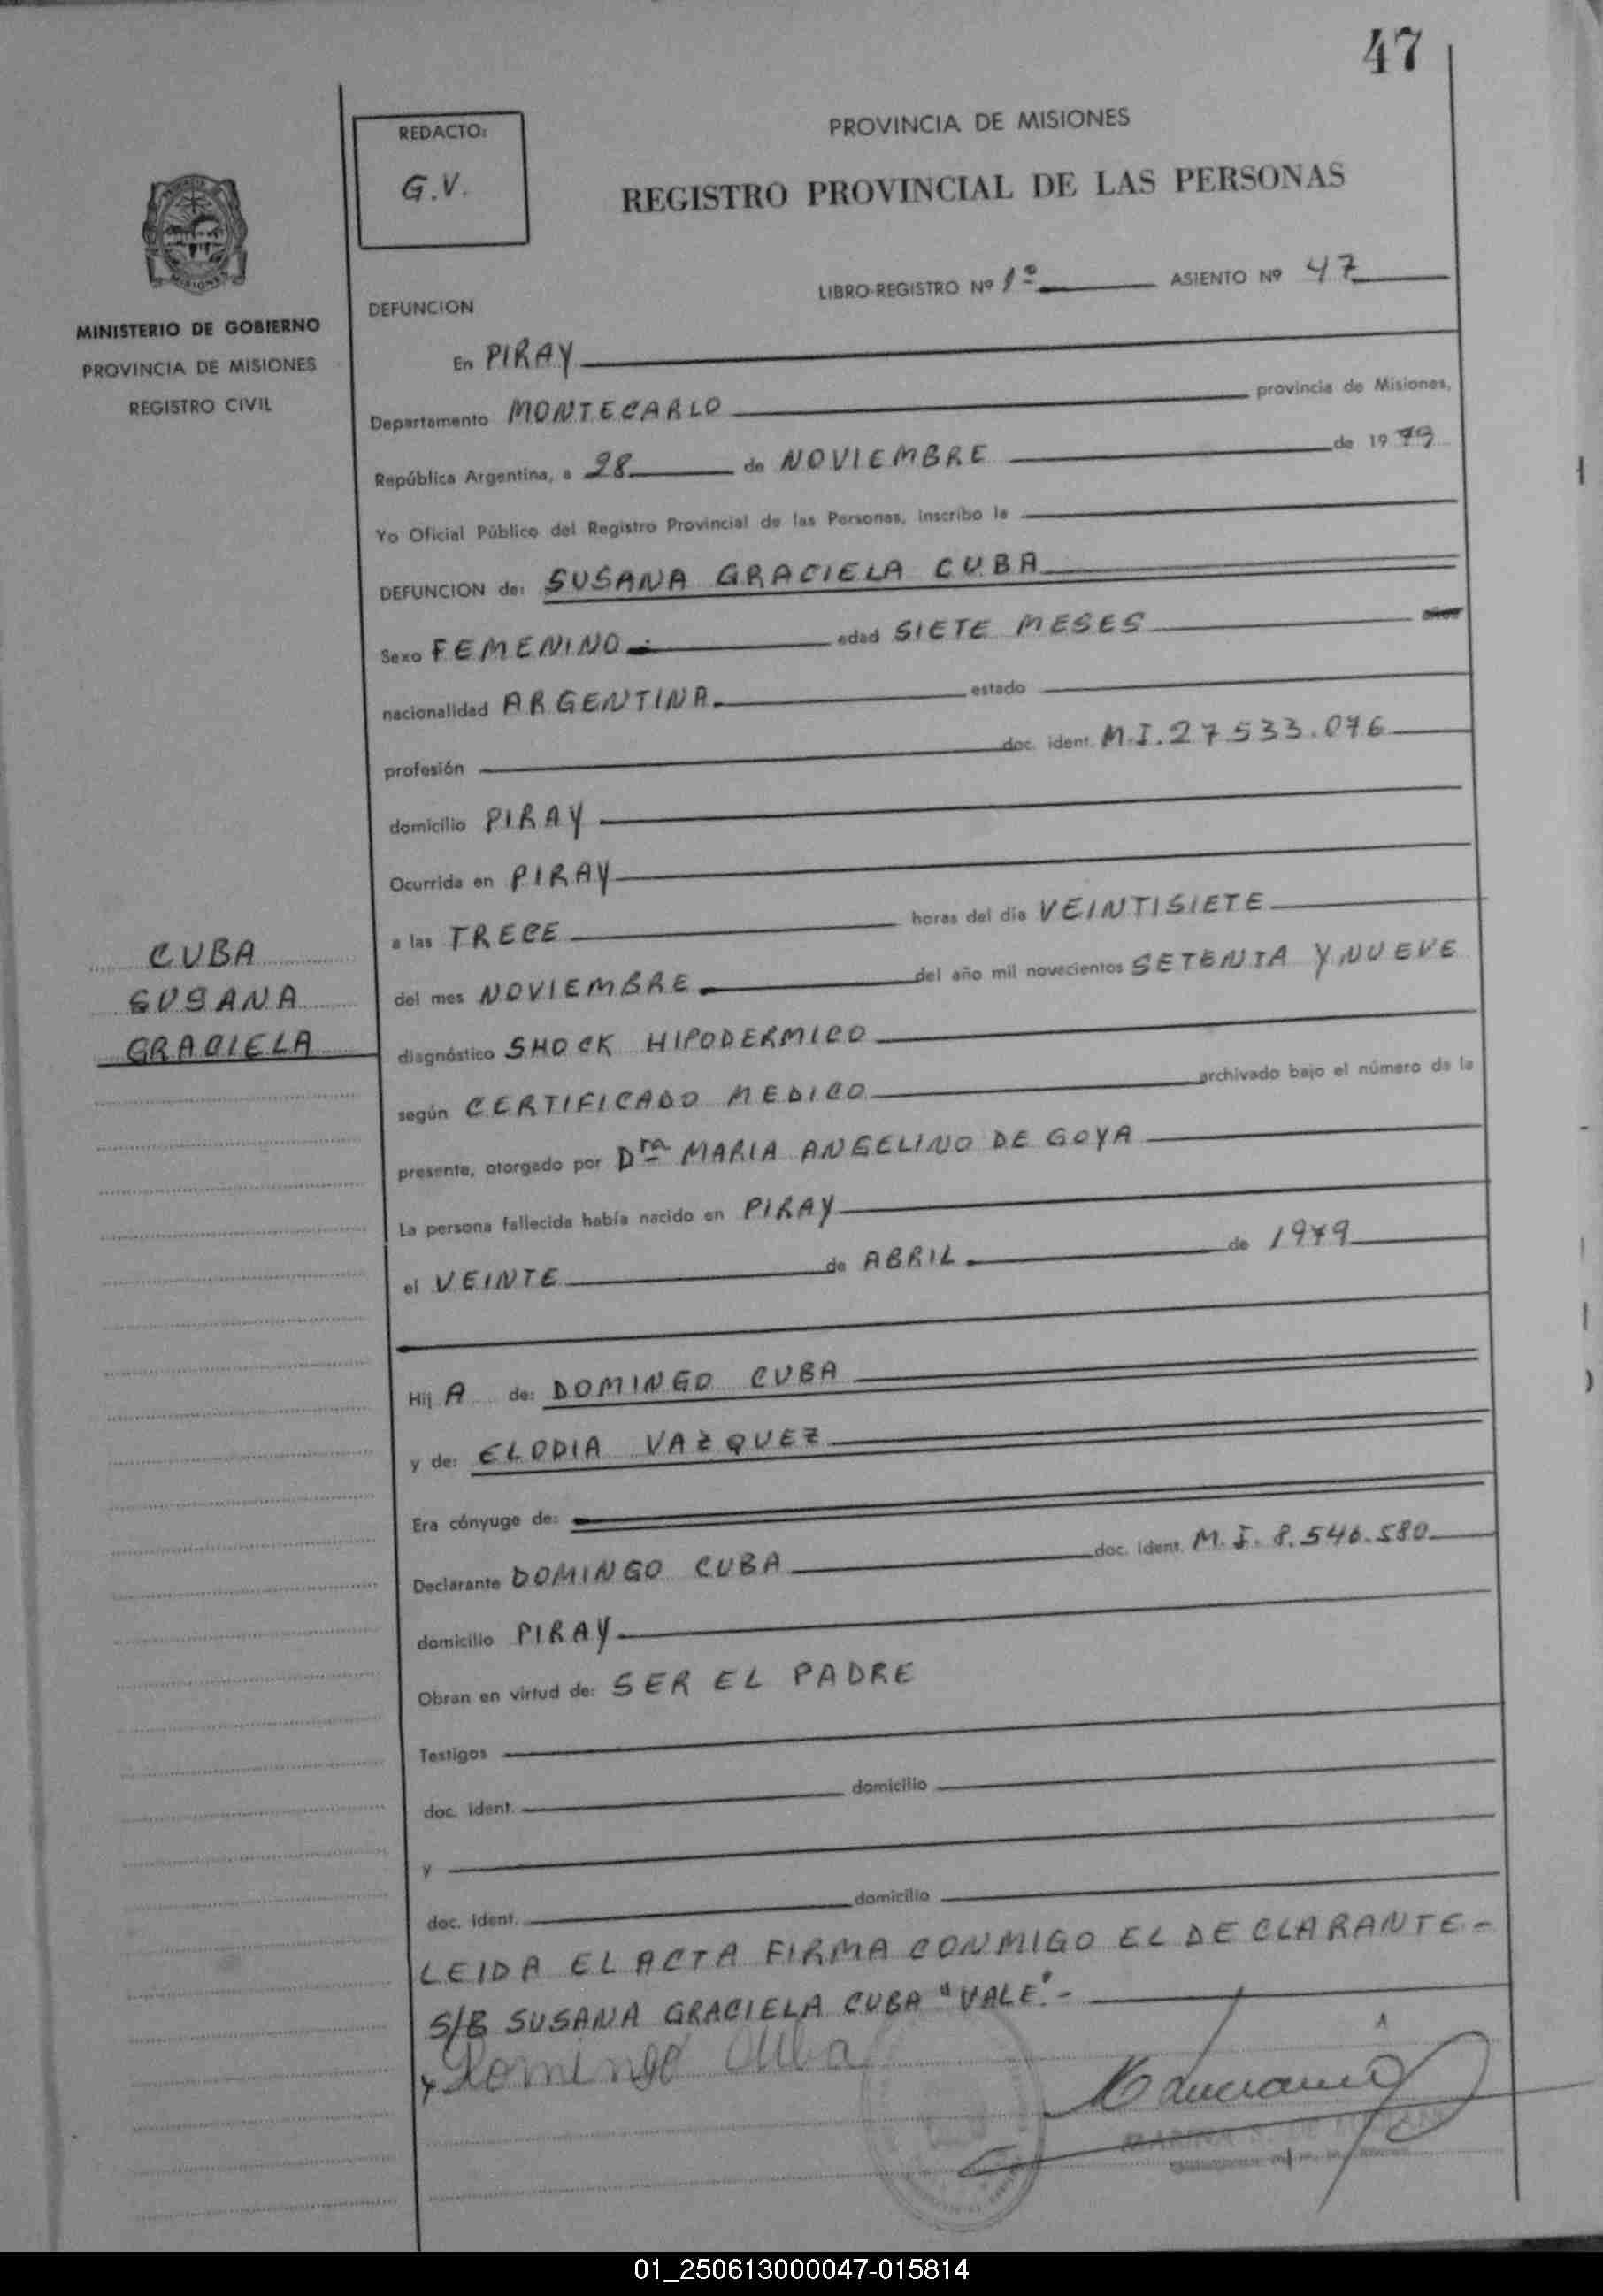 47
REDACTO:
G.V.
PROVINCIA DE MISIONES
REGISTRO PROVINCIAL DE LAS PERSONAS
MISIONES
MINISTERIO DE GOBIERNO
PROVINCIA DE MISIONES
REGISTRO CIVIL
LIBRO-REGISTRO Nº 1º ASIENTO Nº 47
DEFUNCION
En PIRAY
Departamento MONTECARLO provincia de Misiones,
República Argentina, a 28 de NOVIEMBRE de 1979
Yo Oficial Público del Registro Provincial de las Personas, inscribo la
DEFUNCION de: SUSANA GRACIELA CUBA
Sexo FEMENINO edad SIETE MESES años
nacionalidad ARGENTINA estado
profesión doc. ident. M.I. 27.533.076
domicilio PIRAY
Ocurrida en PIRAY
a las TRECE horas del día VEINTISIETE
del mes NOVIEMBRE del año mil novecientos SETENTA Y NUEVE
CUBA
SUSANA
GRACIELA
diagnóstico SHOCK HIPODERMICO
según CERTIFICADO MEDICO archivado bajo el número de la
presente, otorgado por Dra MARIA ANGELINO DE GOYA
La persona fallecida había nacido en PIRAY
el VEINTE de ABRIL de 1979
Hij A de: DOMINGO CUBA
y de: ELODIA VAZQUEZ
Era cónyuge de:
Declarante DOMINGO CUBA doc. ident. M.I. 8.546.580
domicilio PIRAY
Obran en virtud de: SER EL PADRE
Testigos
doc. ident. domicilio
y
doc. ident. domicilio
LEIDA EL ACTA FIRMA CONMIGO EL DECLARANTE.-
S/B SUSANA GRACIELA CUBA "VALE".-
x Domingo Cuba
MARINA S. DE
01_250613000047-015814